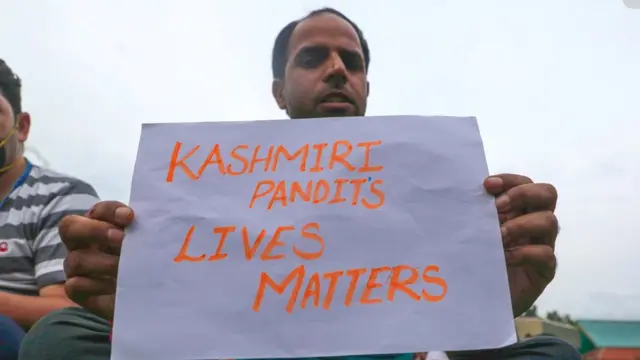 KASHMIRI
PANDIT'S
LIVES
MATTERS